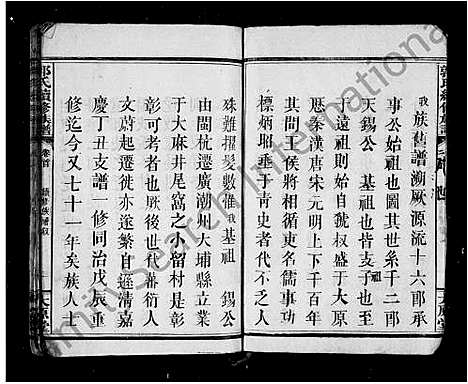 我族舊譜溯厥源流十六郎承
事公始祖也圖其世系千二郎
天錫公基祖也皆支子也
于遠祖則自虢叔盛于大原
歷秦漢唐宋元明上下千百年
間王侯將相何可殫名儒事功
標炳昭垂于青史者代不乏人
殊難擢髮數惟我基祖錫公
由閩杭遷廣潮州大埔縣立業
于大麻村尾窩之小留村是彰
彰可考者也厥後世代蕃衍人
文蔚起遷徙亦遂繁自遜清嘉
慶丁丑支譜一修同治戊辰重
修迄今又七十一年矣族人士
郭氏續修族譜
卷首
太原堂
Search International